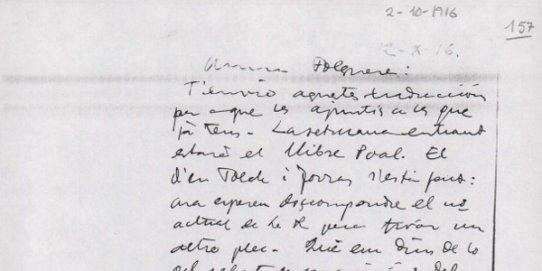 2-10-1916
157
2-X-16.
Folguera:
T'envio aquestes traduccions
per a que les ajuntis a les que
ja tens. La setmana entrant
estarà el llibre Poal. El
d'en Folch i Torras s'està fent:
ara esperen descompondre el nº
actual de la R per a tirar un
altre plec. Què em dius de lo
del